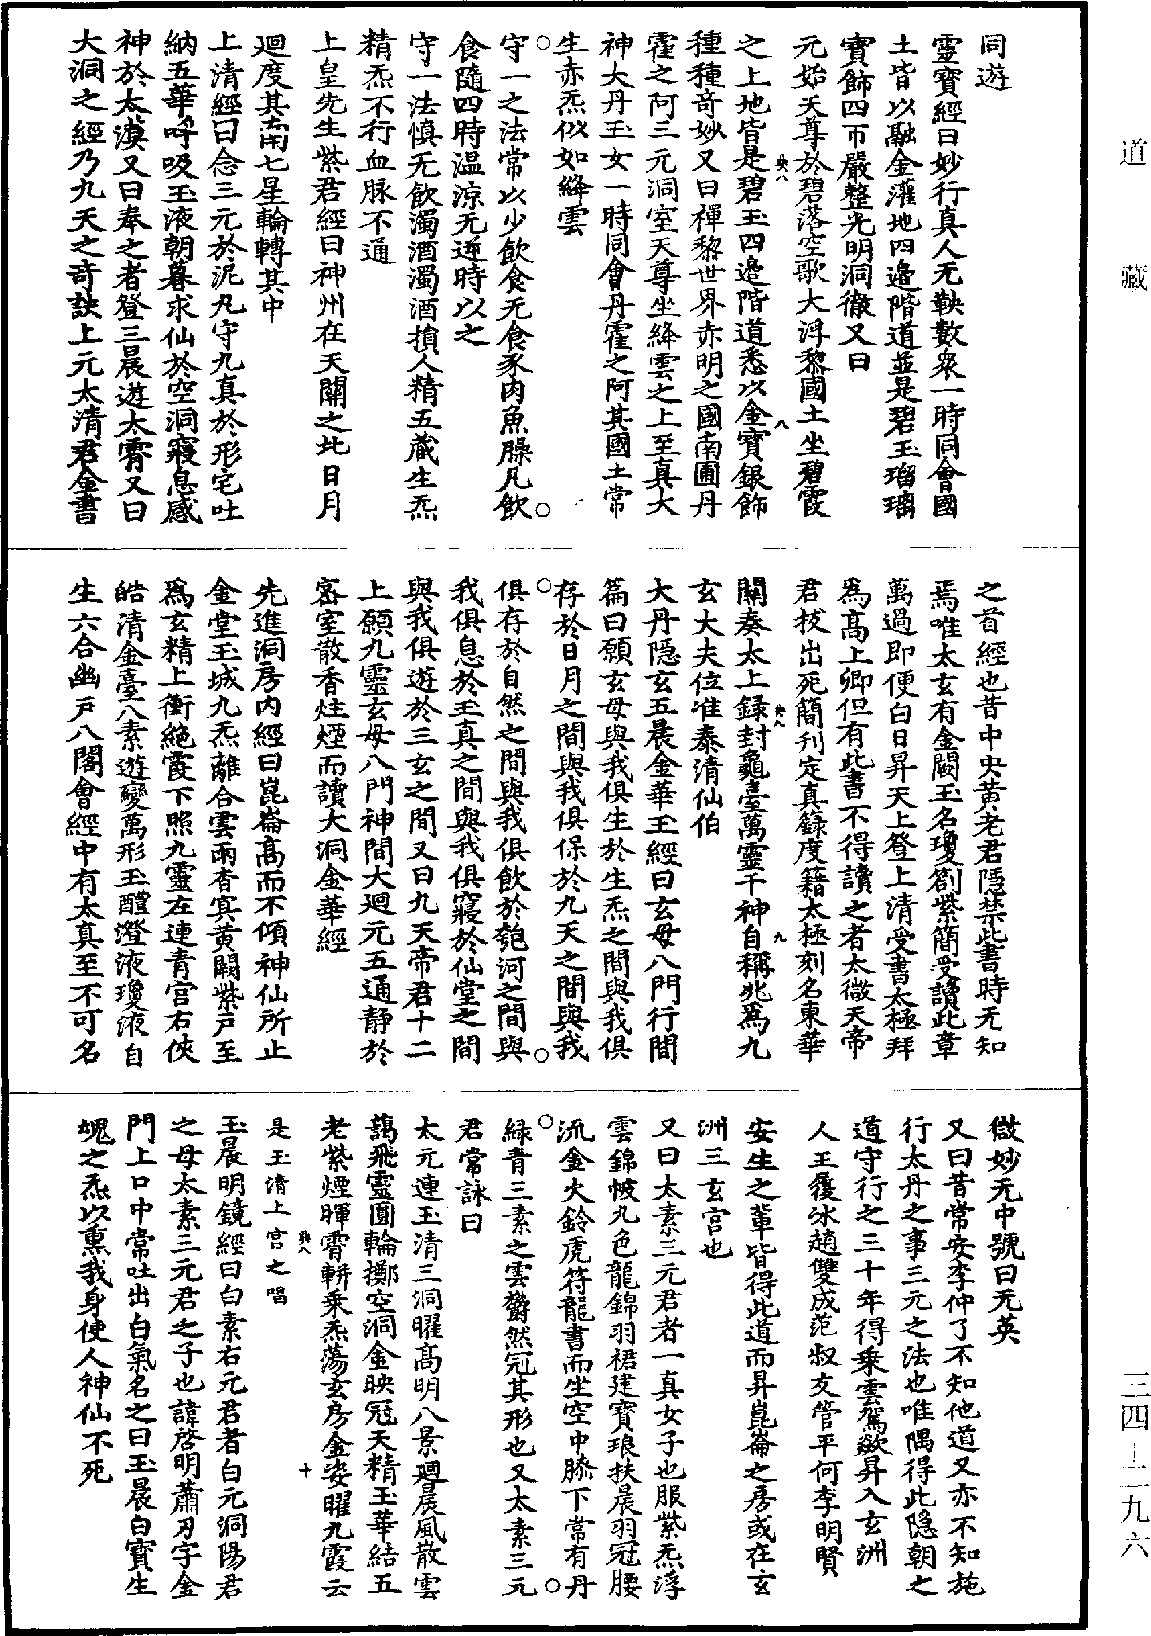 道藏
三四—二九六
同遊
靈寶經曰妙行真人无鞅數衆一時同會國
土皆以融金灌地四邉階道並是碧玉瑠璃
寳飾四帀嚴整光明洞徹又曰
元始天尊於碧落空歌大浮黎國土坐碧霞
之上地皆是碧玉四邉階道悉以金寳銀飾
種種竒妙又曰禪黎世界赤明之國南圃丹
霍之阿三元洞室天尊坐絳雲之上至真大
神大丹玉女一時同會丹霍之阿其國土常
生赤炁似如絳雲
守一之法常以少飲食无食豕肉魚臊凡飲
食隨四時温涼无逆時以之
守一法慎无飲濁酒濁酒損人精五藏生炁
精炁不行血脉不通
上皇先生紫君經曰神州在天關之北日月
迴度其南七星輪轉其中
上清經曰念三元於泥丸守九真於形宅吐
納五華呼吸玉液朝暮求仙於空洞寢息感
神於太漠又曰奉之者登三晨遊太霄又曰
大洞之經乃九天之竒訣上元太清君金書
之首經也昔中央黄老君隱禁此書時无知
焉唯太玄有金闕玉名瓊劄紫簡受讀此章
萬過即便白日昇天上登上清受書太極拜
爲髙上卿但有此書不得讀之者太微天帝
君拔出死簡刋定真籙度籍太極刻名東華
關奏太上録封龜臺萬靈千神自稱兆爲九
玄大夫位准泰清仙伯
大丹隱玄五晨金華玉經曰玄母八門行間
篇曰願玄母與我俱生於生炁之間與我俱
存於日月之間與我俱保於九天之間與我
俱存於自然之間與我俱飲於匏河之間與
我俱息於玉真之間與我俱寢於仙堂之間
與我俱遊於三玄之間又曰九天帝君十二
上願九靈玄母八門神間大廻元五通靜於
密室散香炷煙而讀大洞金華經
先進洞房内經曰崑崙髙而不傾神仙所止
金堂玉城九炁離合雲雨杳㝠黄闕紫戸至
爲玄精上衝絶霞下照九靈左連青宫右俠
皓清金臺八素遊變萬形玉醴澄液瓊液自
生六合幽戸八閣會經中有太真至不可名
微妙无中號曰无英
又曰昔常安李仲了不知他道又亦不知施
行太丹之事三元之法也唯隅得此隱朝之
道守行之三十年得乗雲駕歘昇入玄洲
人王履冰趙雙成范叔友管平何李明賢
安生之輩皆得此道而昇崑崙之房或在玄
洲三玄宫也
又曰太素三元君者一真女子也服紫炁浮
雲錦帔九色龍錦羽裙建寳琅扶晨羽冠腰
流金火鈴虎符龍書而坐空中膝下常有丹
緑青三素之雲欝然冠其形也又太素三元
君常詠曰
太元連玉清三洞曜髙明八景廻晨風散雲
藹飛靈圓輪擲空洞金映冠天精玉華結五
老紫煙暉霄軿乗炁蕩玄房金姿曜九霞云
是玉清上宫之唱
玉晨明鏡經曰白素右元君者白元洞陽君
之母太素三元君之子也諱啓明蕭刃字金
門上口中常吐出白氣名之曰玉晨白寳生
媿之炁以熏我身使人神仙不死